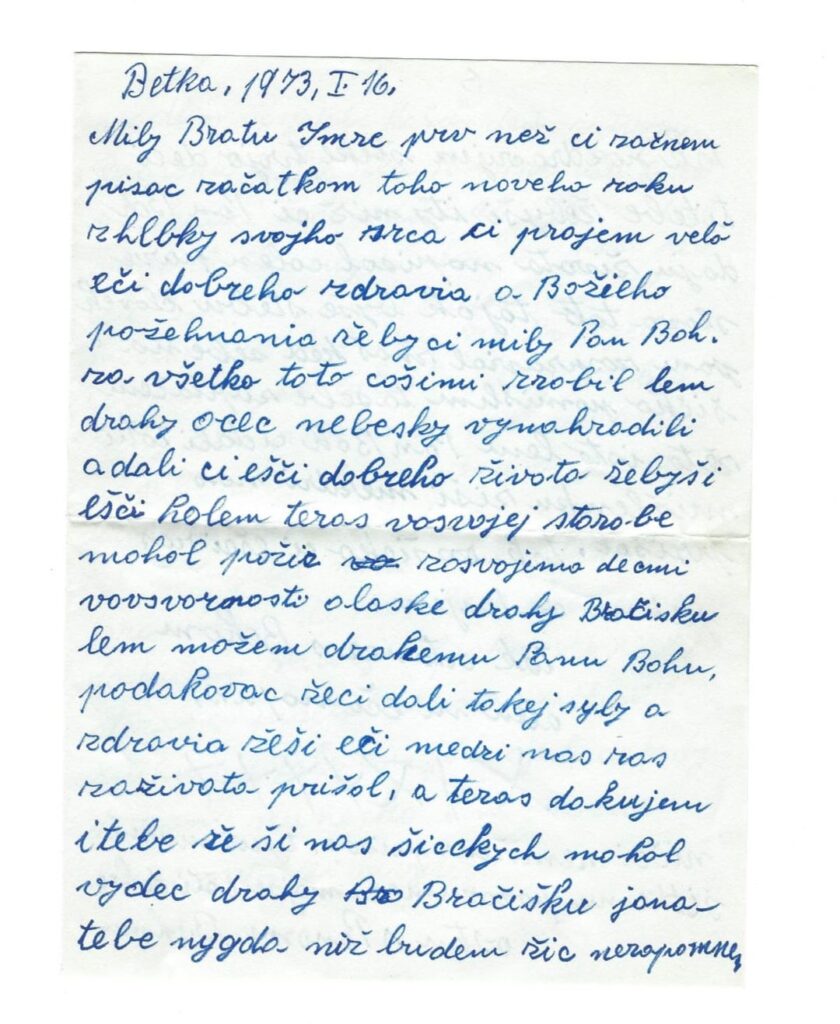 Detka, 1973, I. 16.
Mily Bratu Imre prv než ci začnem
pisac začatkom toho noveho roku
zhlbky svojho srca ci prajem velo
eči dobreho zdravia a Božieho
požehnania žeby ci mily Pan Boh.
za všetko toto cošinu. zrobil lem
drahy Ocec nebesky vynahradili
a dali ci ešči dobreho života žebyši
ešči kolem teras vosvojej starobe
mohol požic zosvojima decmi
vovsvornosti alaske drahy Bračisku
lem možem drahemu Panu Bohu,
podakovac žeci dali takej syly a
zdravia žeši eči medzi nas ras
zaživata prišol, a teras dakujem
i tebe že ši nas šicckych mohol
vydec drahy Bračišku jana-
tebe nygda niž budem žic nezapomnem